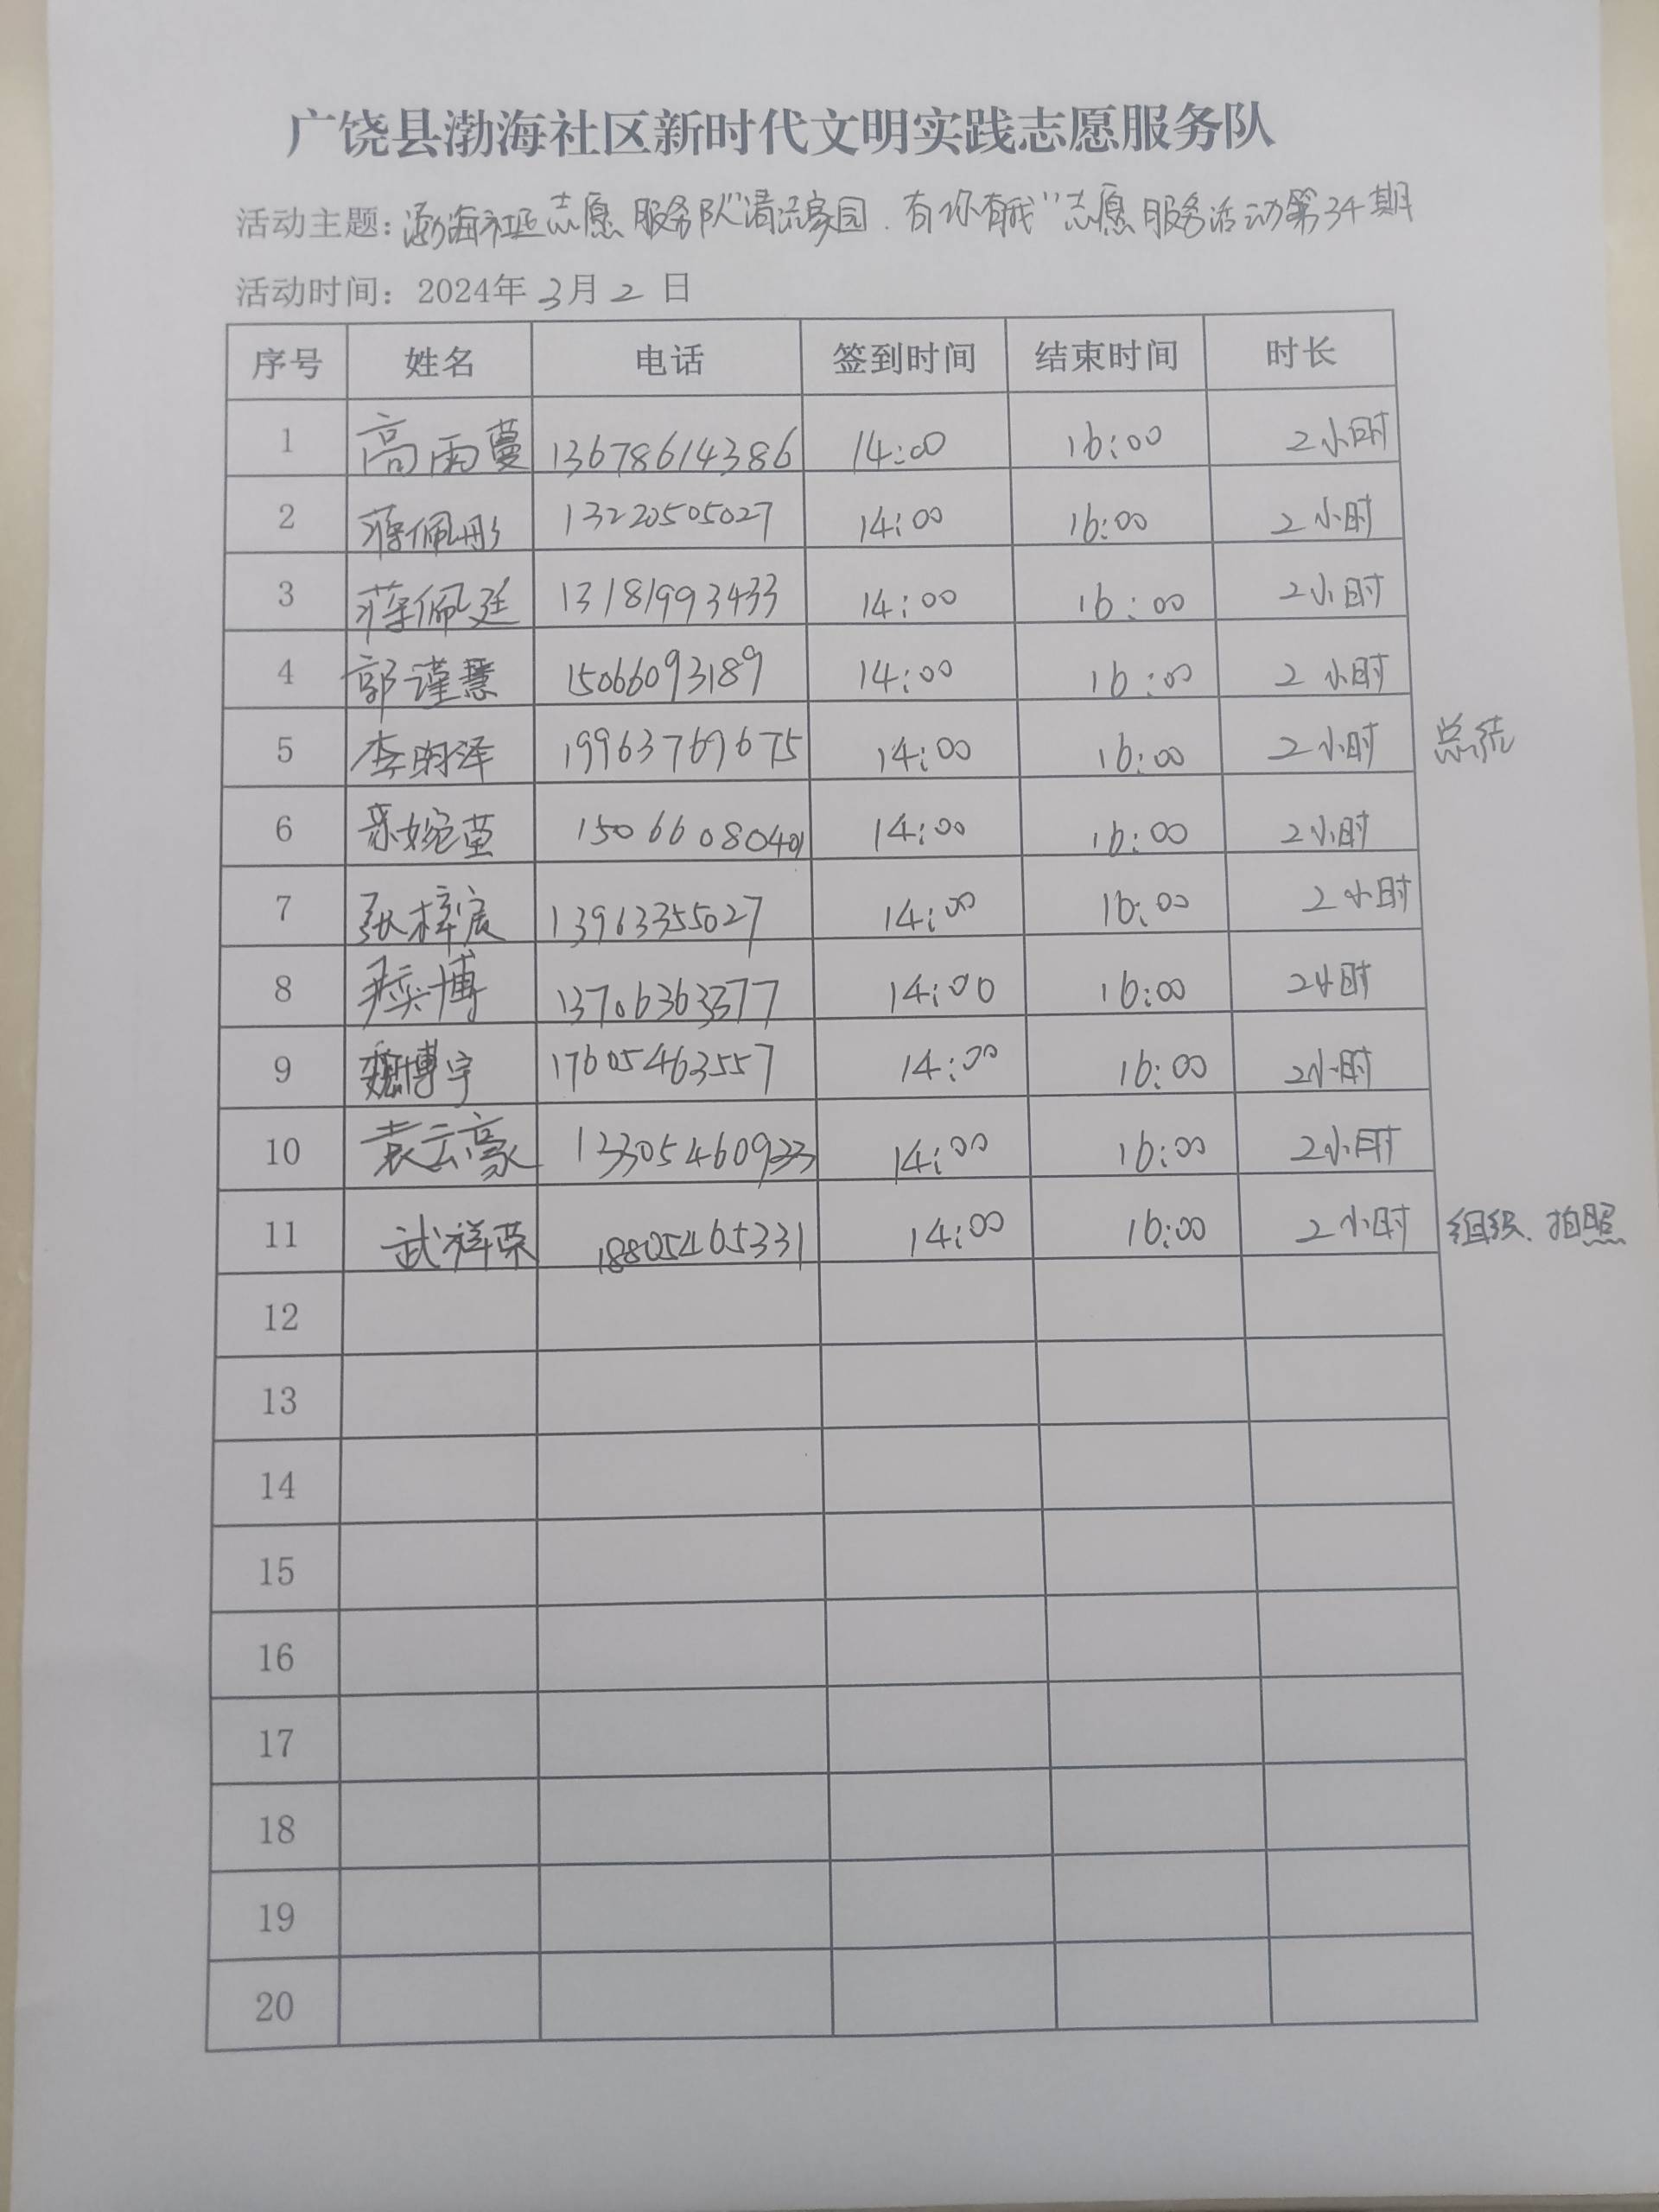 广饶县渤海社区新时代文明实践志愿服务队
活动主题：渤海社区志愿服务队"清洁家园.有你有我"志愿服务活动第34期
活动时间：2024年3月2日
序号 姓名 电话 签到时间 结束时间 时长
1 高雨蔓 13678614386 14:00 16:00 2小时
2 蒋佩彤 13220505027 14:00 16:00 2小时
3 蒋佩廷 13181993433 14:00 16:00 2小时
4 郭谨慧 15066093189 14:00 16:00 2小时
5 李昀泽 19963769675 14:00 16:00 2小时 总结
6 婉萤 15066080401 14:00 16:00 2小时
7 张梓宸 13963355027 14:00 16:00 2小时
8 尹奕博 13706363377 14:00 16:00 2小时
9 魏博宇 17605463557 14:00 16:00 2小时
10 袁云豪 13305460933 14:00 16:00 2小时
11 武祥荣 18805465331 14:00 16:00 2小时 组织、拍照
12
13
14
15
16
17
18
19
20